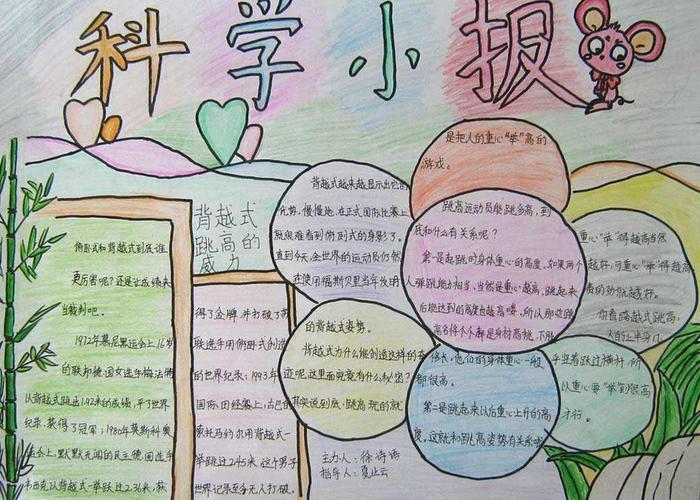 科学小报
背越式
跳高的
威力
俯卧式和背越式到底谁
更厉害呢？还是让成绩来
当裁判吧。
1972年慕尼黑运会上，16岁
的联邦德国女选手梅法特
从背越式跳出1.92米的成绩，平了世界
纪录，获得了冠军；1980年莫斯科奥
运会上，默默无闻的民主德国选手
韦西克以背越式一举跃过2.36米，获
得了金牌并打破了苏
联选手用俯卧式创造
的世界纪录；1993年
国标，田经赛上，古巴的
索托马约尔用背越式一
举跳过2.45米，这个男子
世界记录至今无人打破。
背越式越来越显示出它的
优势，慢慢地，在正式国际比赛上
就很难看到俯卧式的身影了。
直到今天，全世界的运动员仍然
在使用福斯贝里当年发明
的背越式姿势。
背越式为什么能创造这样的奇
迹呢？这里面究竟有什么秘密？
其实说到底，跳高玩的就
是把人的重心“举”高的
游戏。
跳高运动员能跳多高，到
底和什么有关系呢？
第一是起跳时身体重心的高度，如果两个
人弹跳能力相当，当然是重心越高，跳起来
后能达到的高度也越高喽，所以那些跳
高名将个个都是身材高挑、下肢
修长，他们的身体重心一般
都很高。
第二是跳起来以后重心上升的高
度，这就和跳高姿势有关系啦
重心“举”得越高当然
越好，可重心“举”得越高
费的劲就越好。
你看跳越式跳高，
人的上半身几
乎竖着跃过横杆，所
以重心要“举”到很高
才行。
主力人：徐诗语
指导人：夏业云